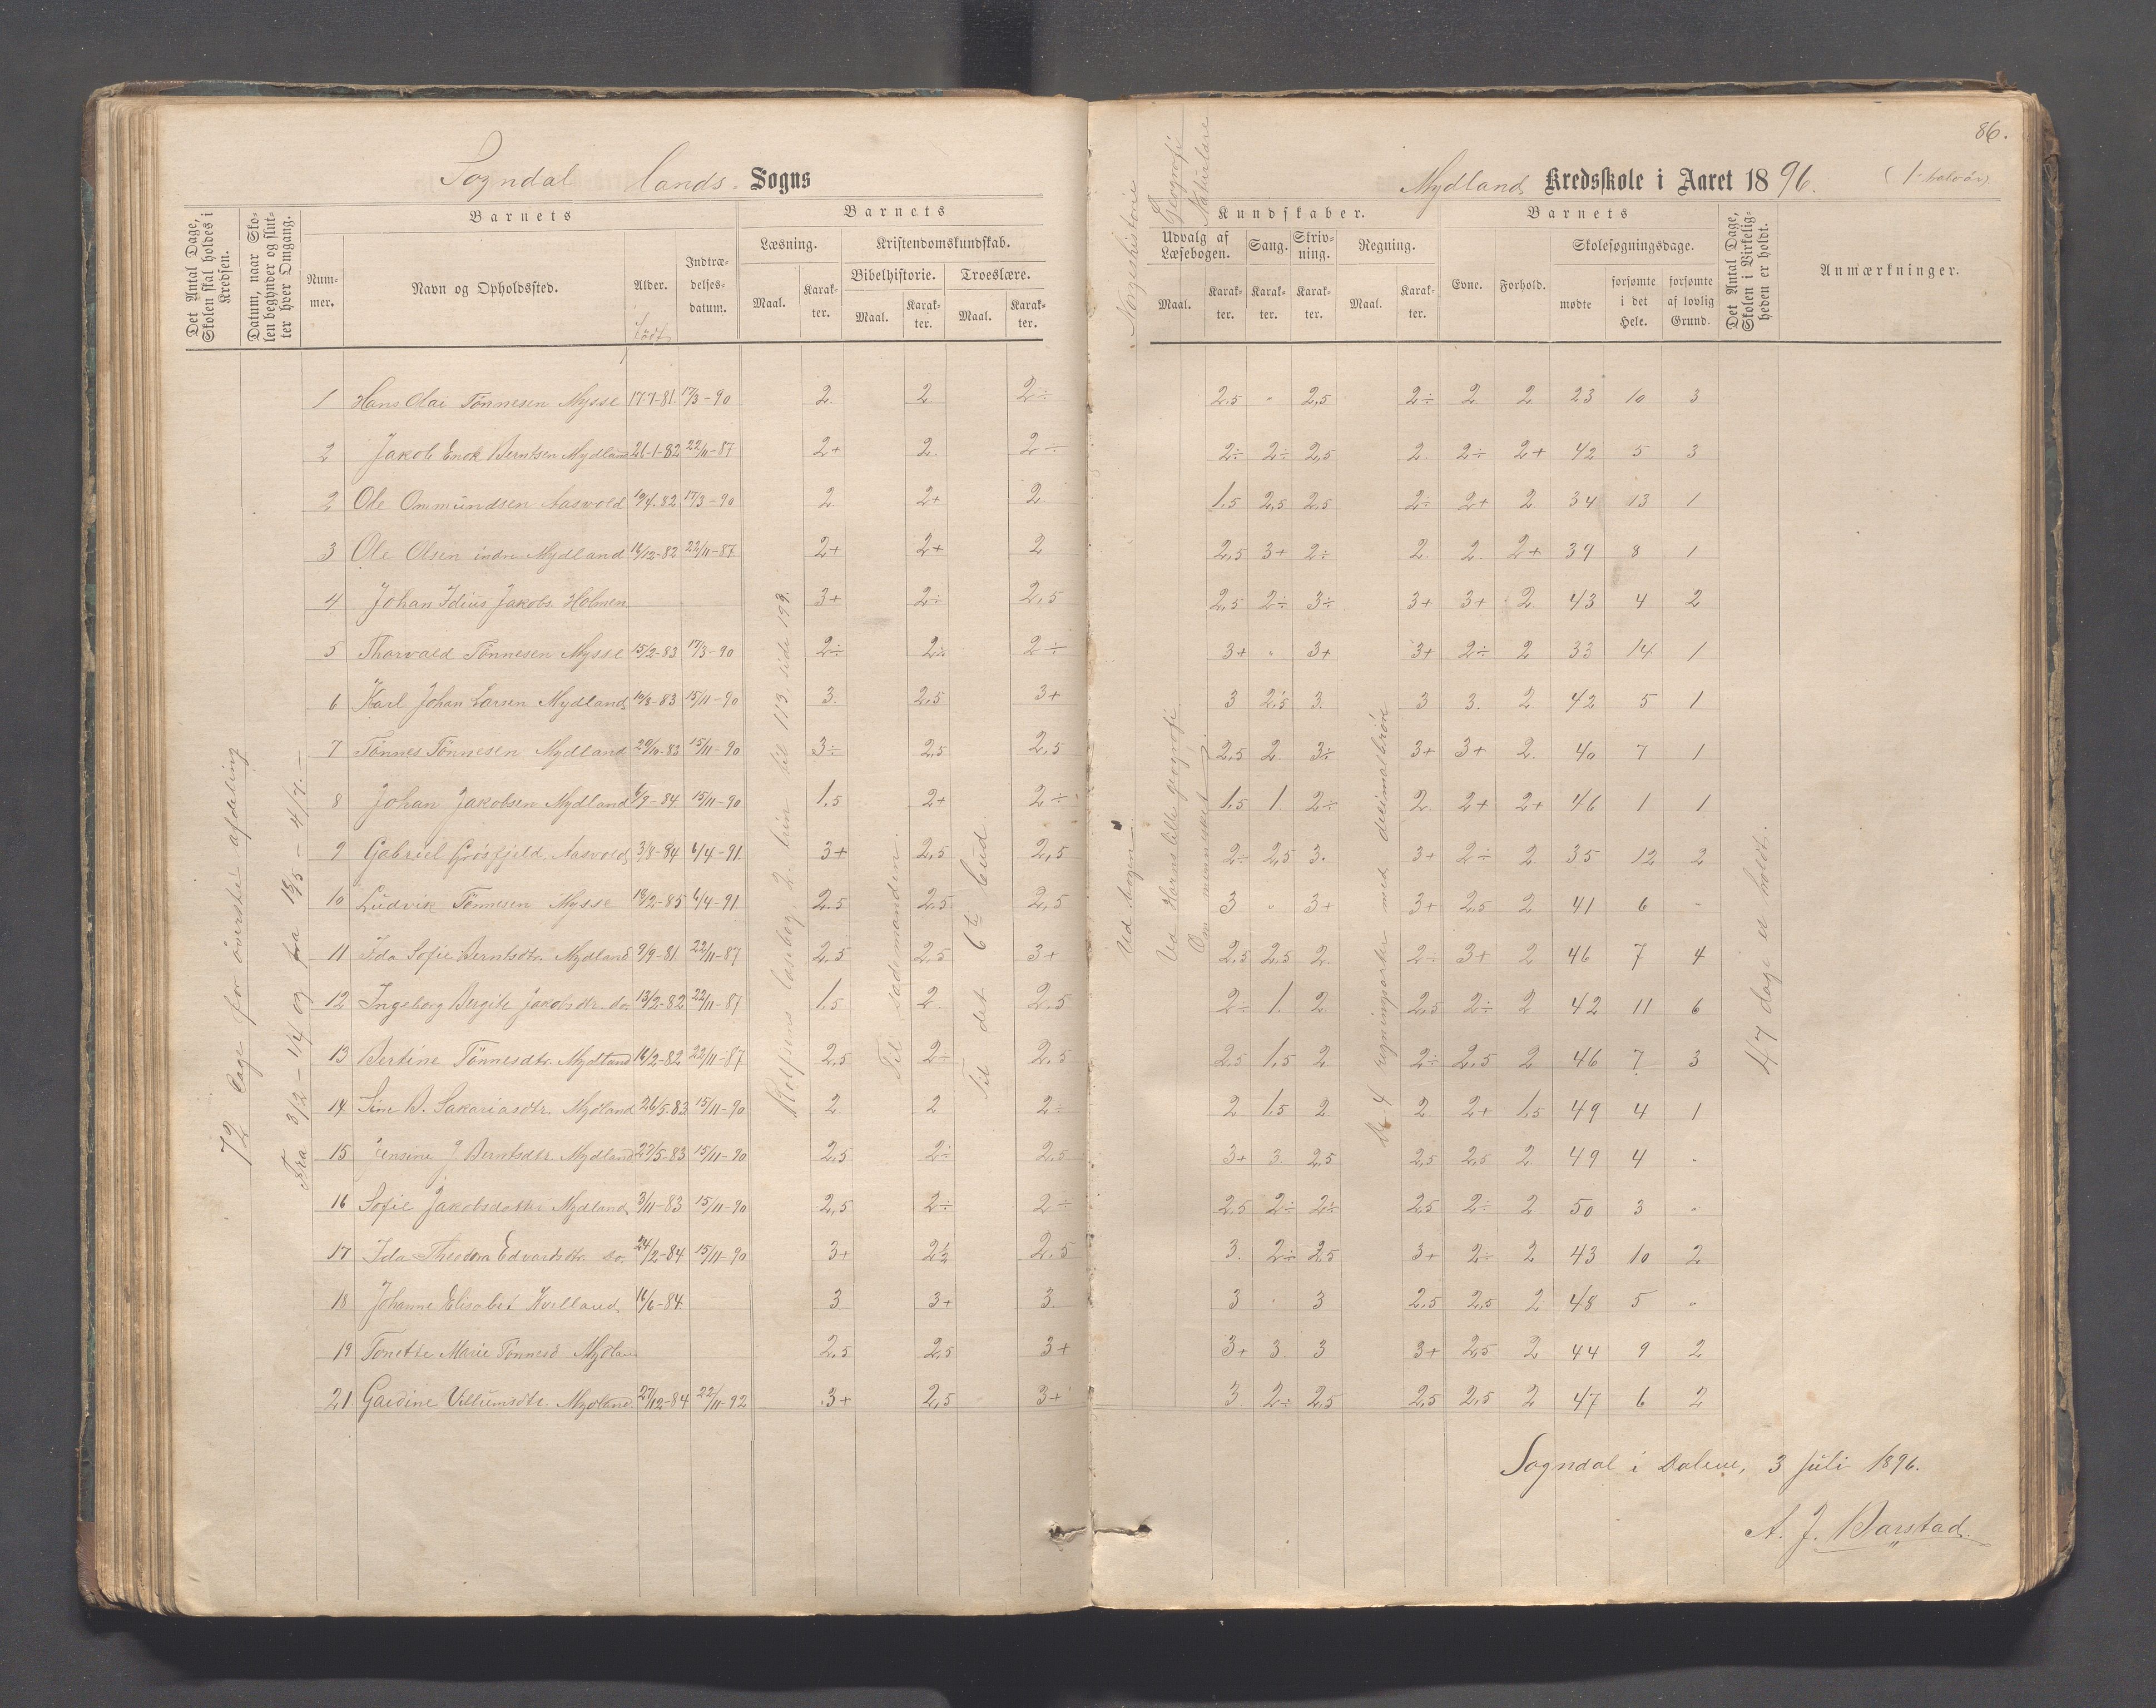 86.
Sogndal lands Sogns
Mydland Kredsskole i Aaret 1896. (1ste halvår)
Det Antal Dage, Skolen skal holdes i Kredsen.
Datum, naar Skolen begynder og slutter hver Omgang.
Nummer.
Barnets
Navn og Opholdssted.
Alder.
født
Indtrædelsesdatum.
Barnets
Læsning.
Maal.
Karakter.
Kristendomskundskab.
Bibelhistorie.
Maal.
Karakter.
Troeslære.
Maal.
Karakter.
Norgeshistorie
Geografi
Naturlære
Kundskaber.
Udvalg af Læsebogen.
Maal.
Karakter.
Sang.
Karakter.
Skrivning.
Karakter.
Regning.
Maal.
Karakter.
Barnets
Evne.
Forhold.
Skolesøgningsdage.
mødte
forsømte i det Hele.
forsømte af lovlig Grund.
Det Antal Dage, Skolen i Virkeligheden er holdt.
Anmærkninger.
1 Hans Olai Tönnesen Mysse 17-7-81. 17/3-90 2. 2 2÷ 2.5 " 2,5 2÷ 2 2 23 10 3
2 Jakob Enok Berntsen Mydland 26-1-82 22/11-87 2+ 2. 2÷ 2÷ 2÷ 2,5 2. 2÷ 2+ 42 5 3
2 Ole Ommundsen Aasvold 10/4.82 17/3-90 2. 2+ 2 1.5 2,5 2.5 2÷ 2+ 2 34 13 1
3 Ole Olsen indre Mydland 16/12-82 22/11-87 2+ 2+ 2 2,5 3+ 2÷ 2. 2. 2+ 39 8 1
4 Johan Idius Jakobs. Holmen 3+ 2÷ 2,5 2,5 2÷ 3÷ 3+ 3+ 2 43 4 2
5 Thorvald Tönnesen Mysse 15/2-83 17/3-90 2÷ 2÷ 2÷ 3+ " 3+ 3+ 2÷ 2 33 14 1
6 Karl Johan Larsen Mydland 10/8-83 15/11-90 3. 2,5 3+ 3 2,5 3. 3 3. 2 42 5 1
7 Tönnes Tönnesen Mydland 29/10-83 15/11-90 3÷ 2,5 2,5 2,5 2. 3÷ 3+ 3+ 2. 40 7 1
8 Johan Jakobsen Mydland 6/9-84 15/11-90 1.5 2+ 2÷ 1.5 1. 2÷ 2. 2+ 2+ 46 1 1
9 Gabriel Grösfjeld Aasvold 3/8-84 6/4-91 3+ 2,5 2,5 2÷ 2,5 3. 3+ 2÷ 2 35 12 2
10 Ludvik Tönnesen Mysse 18/2-85 6/4-91 2.5 2.5 2,5 3 " 3+ 3+ 2,5 2 41 6 -
11 Ida Sofie Berntsdtr. Mydland 9/9-81 22/11-87 2,5 2,5 3+ 2,5 2,5 2. 2÷ 3+ 2 46 7 4
12 Ingeborg Bergite Jakobsdtr. do. 13/2-82 22/11-87 1.5 2. 2.5 2÷ 1. 2 2,5 2÷ 2 42 11 6
13 Bertine Tönnesdtr. Mydland 16/2-82 22/11-87 2,5 2÷ 2.5 2.5 1.5 2 2÷ 2,5 2 46 7 3
14 Sine B. Sakariasdtr. Mydland 26/5.83 15/11-90 2. 2 2÷ 2 1.5 2 2 2+ 1.5 49 4 1
15 Jensine J Berntsdtr. Mydland 29/5-83 15/11-90 2,5 2÷ 2.5 3+ 3. 2,5 2,5 2,5 2 49 4 -
16 Sofie Jakobsdatter Mydland 3/11-83 15/11-90 2,5 2÷ 2÷ 2.5 2÷ 2÷ 2,5 2÷ 2 50 3 "
17 Ida Theodora Edvardsdtr. do. 24/2-84 15/11-90 3+ 2½ 2.5 3. 2÷ 2,5 3+ 2÷ 2 43 10 2
18 Johanne Elisabet Kvelland 16/6-84 3 3+ 3. 3 " 3 2,5 2,5 2 48 5 "
19 Tonette Marie Tönnesd Mydland 2.5 2,5 3+ 3+ 3. 3 3+ 2,5 2 44 9 2
21 Gardine Villumsdtr. Mydland 27/12-84 22/11-92 3+ 2,5 3+ 3 2÷ 2.5 2,5 2,5 2 47 6 2
72 dage for överste afdeling
Fra 3/2 - 1/4 og fra 18/5 - 4/7. -
Rolfsens læsebog 2. trin til 113, side 199.
Til sædemanden.
Til det 6te bud.
Ud bogen
Ud Horns lille geografi.
Om mennesket.
De 4 regningsarter med decimalbrök
47 dage er holdt.
Sogndal i Dalene, 3 juli 1896.
A. J. Barstad.